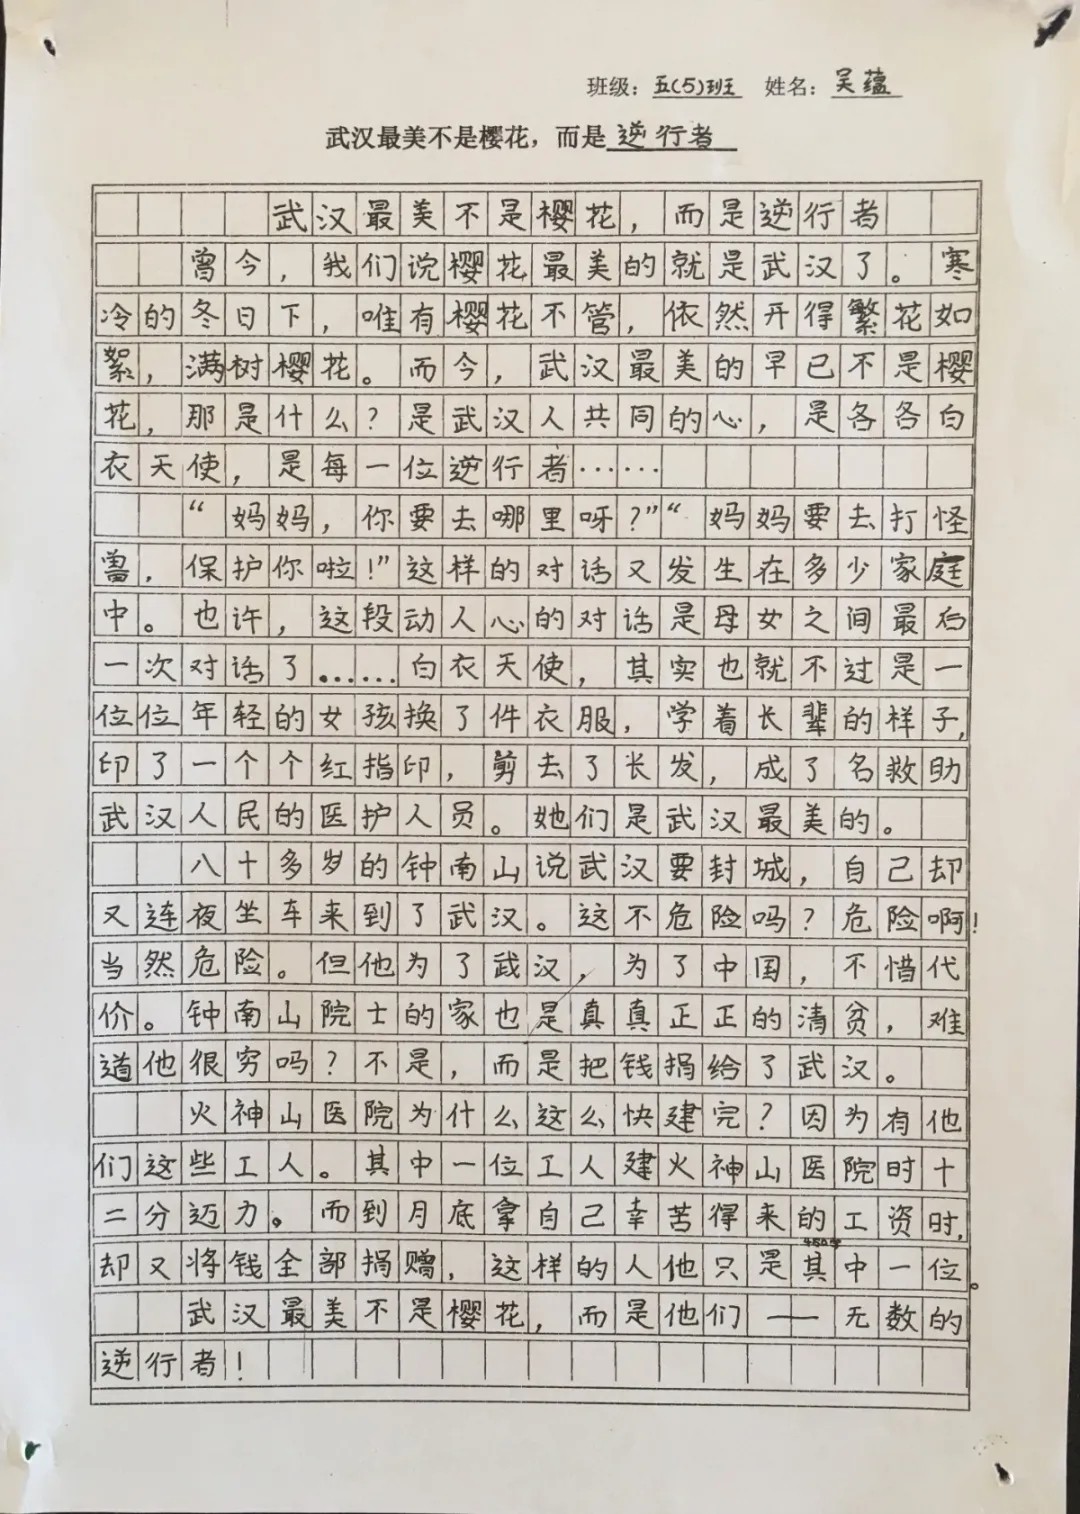 班级：五(5)班 姓名：吴蕴
武汉最美不是樱花，而是逆行者
武汉最美不是樱花，而是逆行者
曾今，我们说樱花最美的就是武汉了。寒
冷的冬日下，唯有樱花不管，依然开得繁花如
絮，满树樱花。而今，武汉最美的早已不是樱
花，那是什么？是武汉人共同的心，是各各白
衣天使，是每一位逆行者……
“妈妈，你要去哪里呀？”“妈妈要去打怪
兽，保护你啦！”这样的对话又发生在多少家庭
中。也许，这段动人心的对话是母女之间最后
一次对话了……白衣天使，其实也就不过是一
位位年轻的女孩换了件衣服，学着长辈的样子，
印了一个个红指印，剪去了长发，成了名救助
武汉人民的医护人员。她们是武汉最美的。
八十多岁的钟南山说武汉要封城，自己却
又连夜坐车来到了武汉。这不危险吗？危险啊！
当然危险。但他为了武汉，为了中国，不惜代
价。钟南山院士的家也是真真正正的清贫，难
道他很穷吗？不是，而是把钱捐给了武汉。
火神山医院为什么这么快建完？因为有他
们这些工人。其中一位工人建火神山医院时十
二分迈力。而到月底拿自己幸苦得来的工资时，
450字
却又将钱全部捐赠，这样的人他只是其中一位。
武汉最美不是樱花，而是他们——无数的
逆行者！